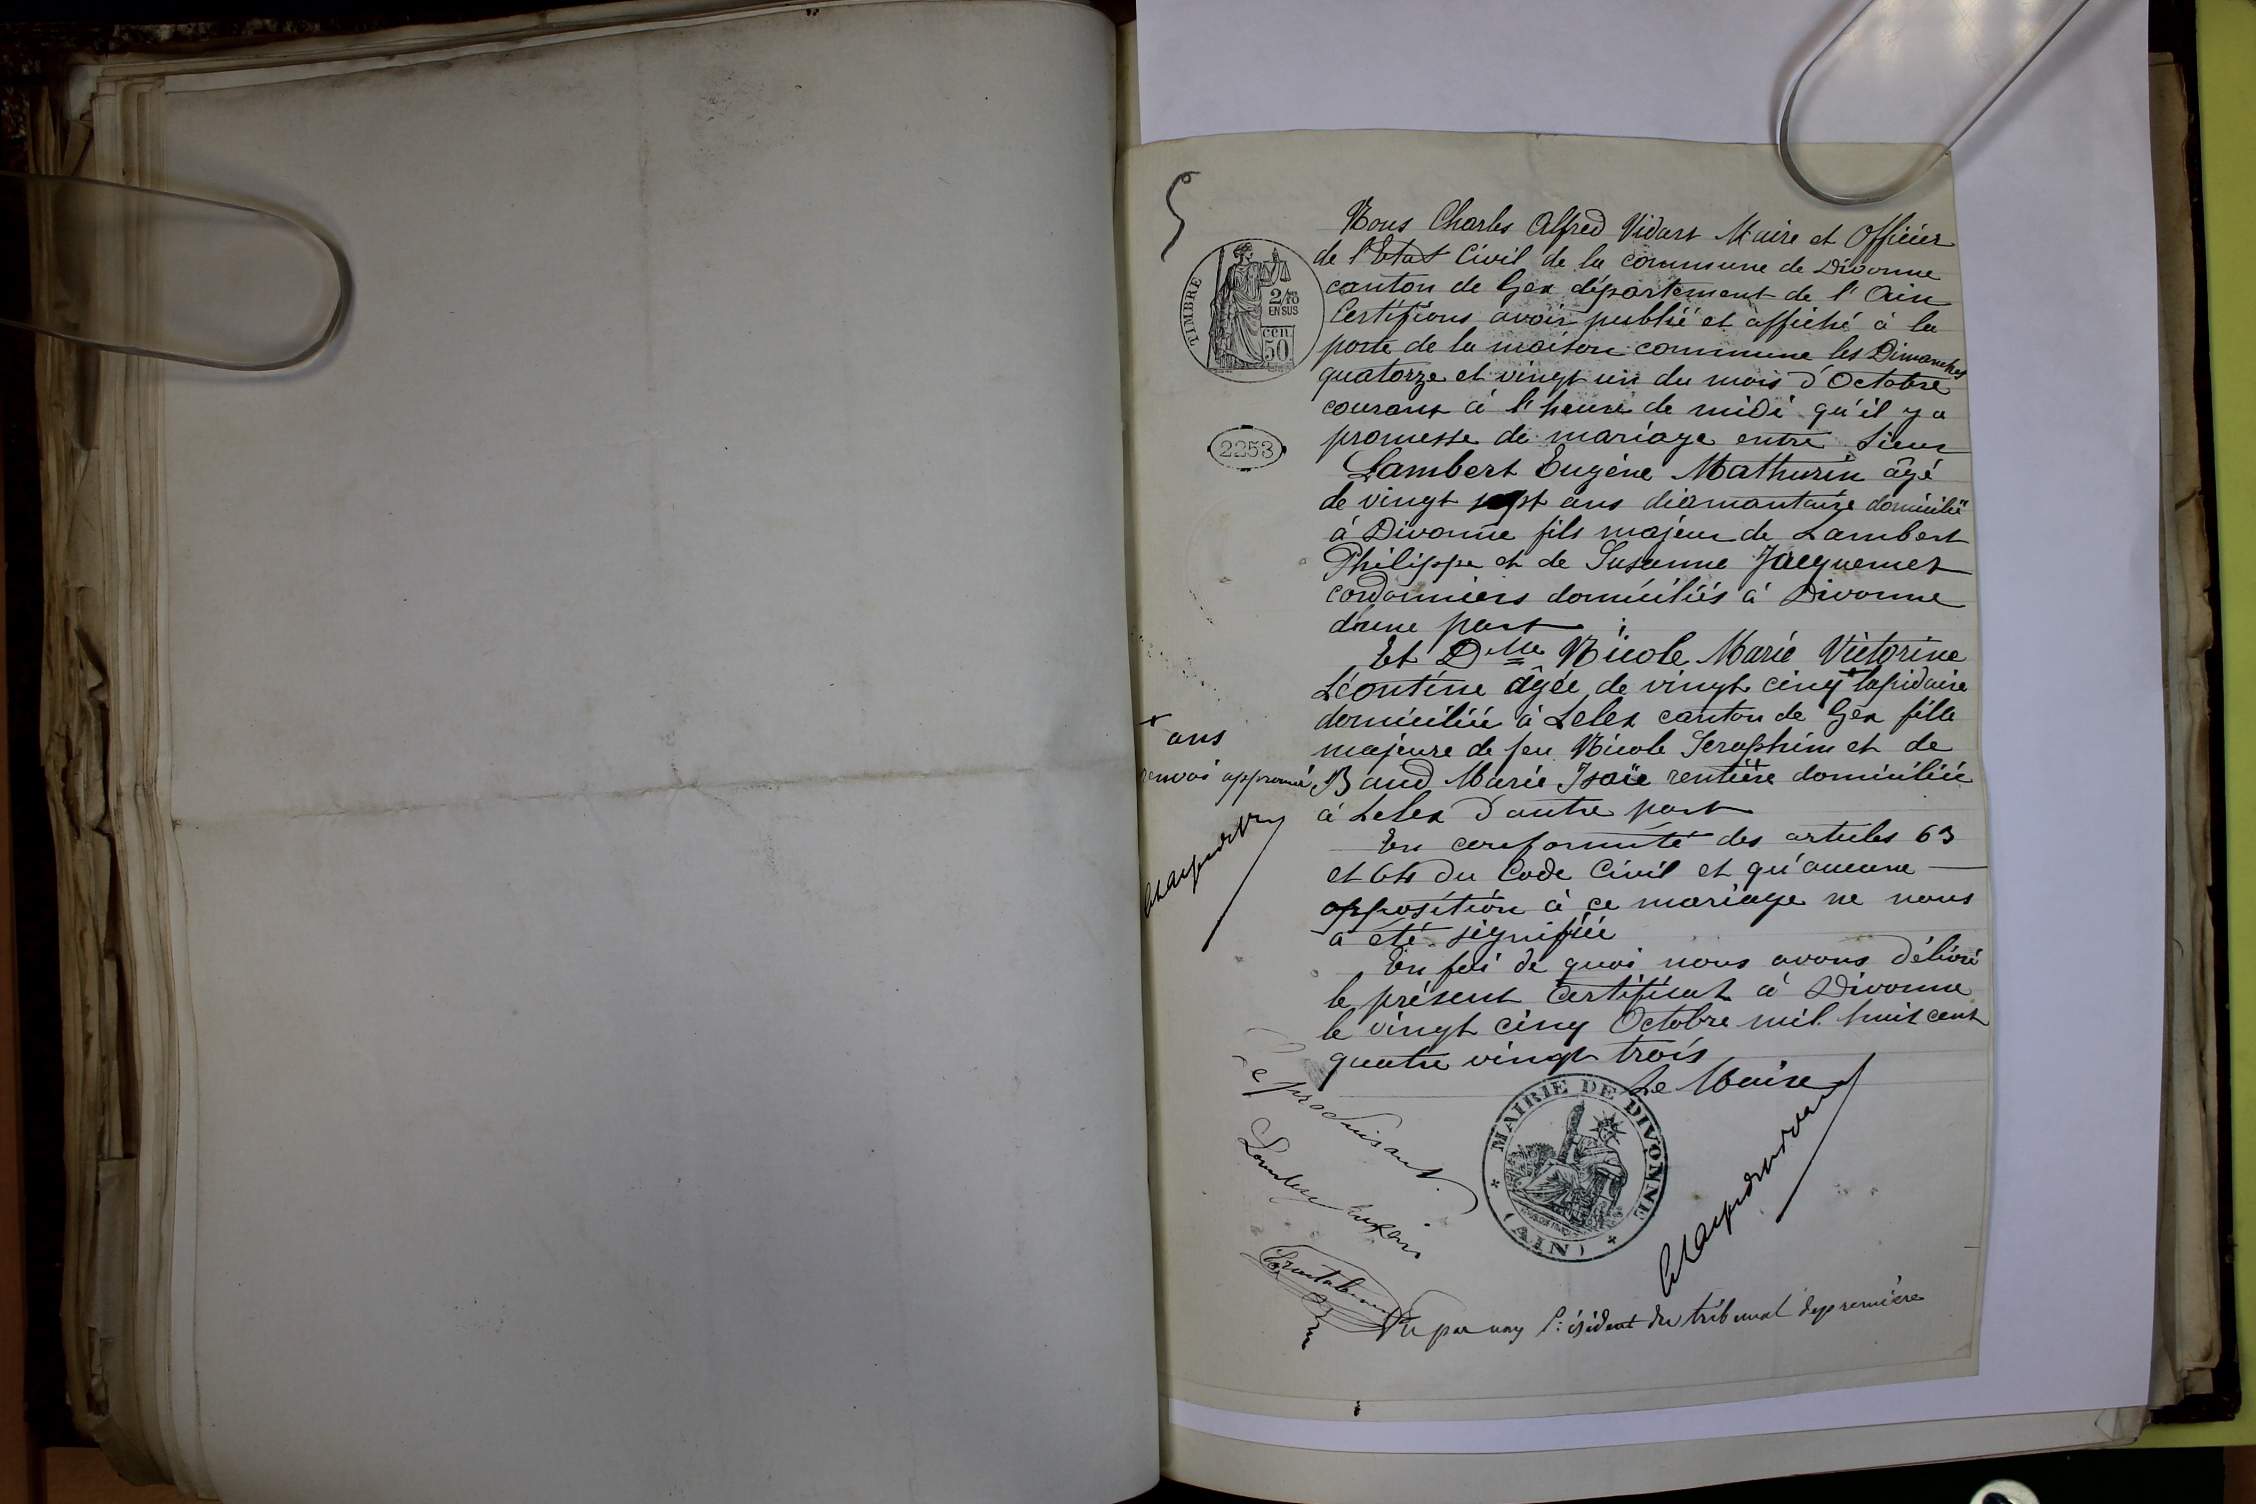 5
TIMBRE
2/10
EN SUS
cen
50
2253
Nous Charles Alfred Vidart Maire et Officier
de l'Etat Civil de la commune de Divonne
canton de Gex département de l'Ain
Certifions avoir publié et affiché à la
porte de la maison commune les Dimanches
quatorze et vingt un du mois d'Octobre
courant à l'heure de midi qu'il y a
promesse de mariage entre Sieur
Lambert Eugène Mathurin âgé
de vingt sept ans diamantaire domicilié
à Divonne fils majeur de Lambert
Philippe et de Susanne Jacquemet
cordonniers domiciliés à Divonne
d'une part ;
Et Dlle Nicole Marie Victorine
Léontine âgée de vingt cinq + lapidaire
domiciliée à Lelex canton de Gex fille
majeure de feu Nicole Seraphim et de
Baud Marie Isaïe rentière domiciliée
à Lelex d'autre part
+ ans
renvoi approuvé
En conformité des articles 63
et 64 du Code Civil et qu'aucune
opposition à ce mariage ne nous
a été signifiée
En foi de quoi nous avons délivré
le présent Certificat à Divonne
le vingt cinq Octobre mil huit cent
quatre vingt trois
Le Maire
MAIRIE DE DIVONNE
(AIN)
Le produisant
Vu par nous Président du tribunal de première